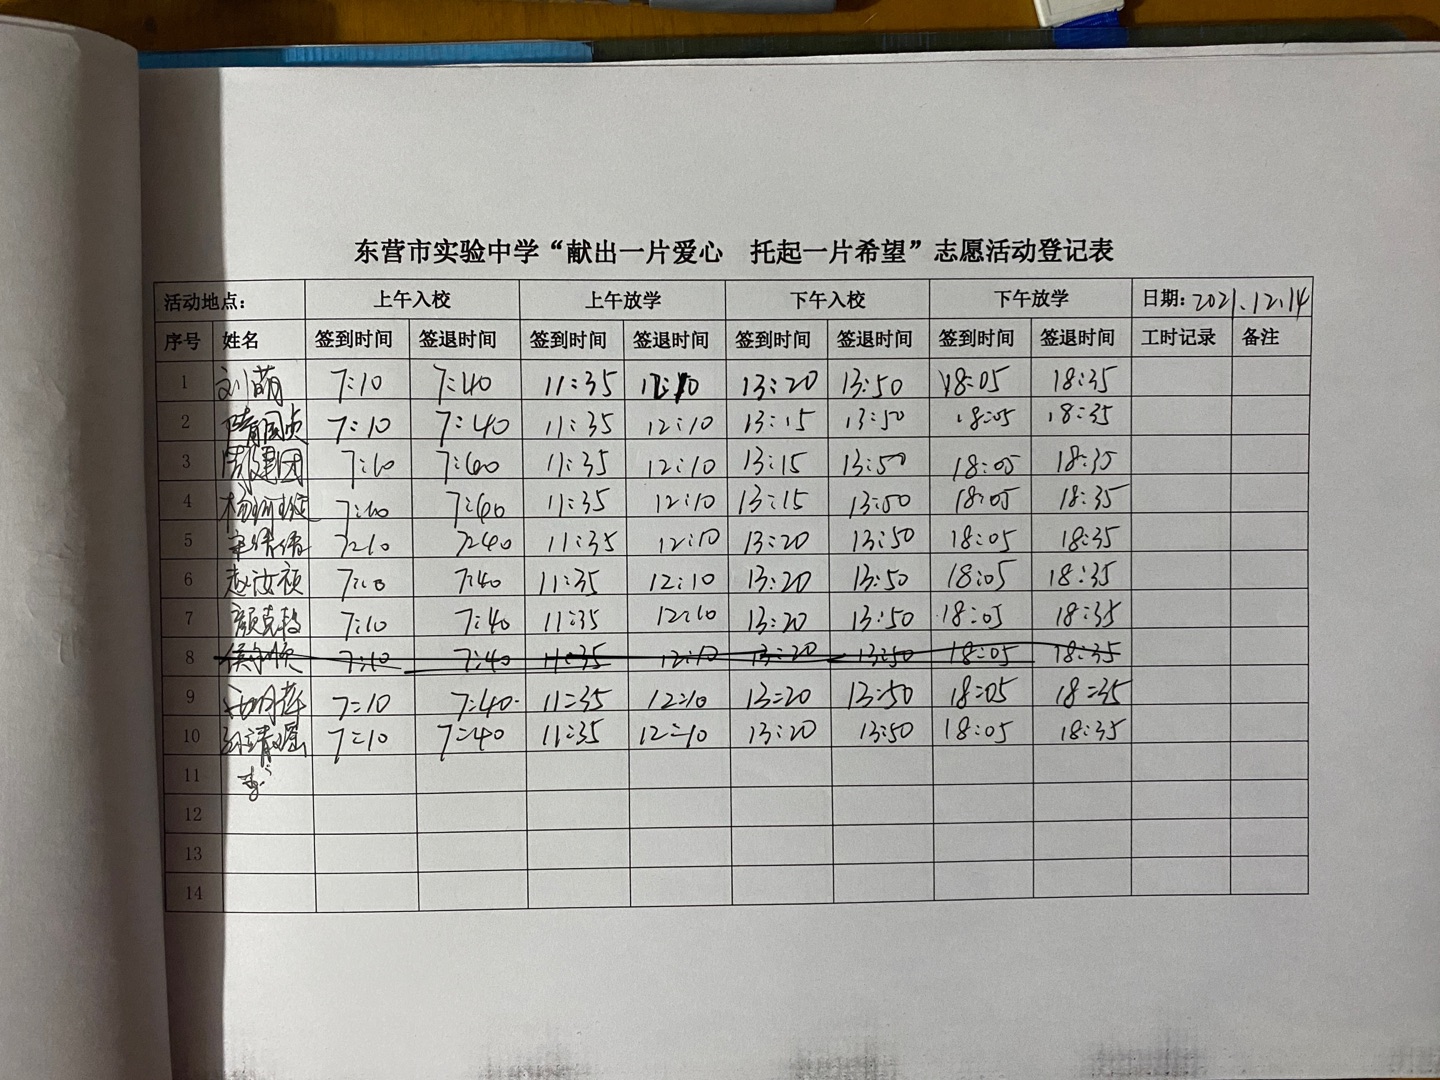 东营市实验中学“献出一片爱心 托起一片希望”志愿活动登记表
活动地点： 上午入校 上午放学 下午入校 下午放学 日期：2021.12.14
序号 姓名 签到时间 签退时间 签到时间 签退时间 签到时间 签退时间 签到时间 签退时间 工时记录 备注
1 刘萌 7:10 7:40 11:35 12:10 13:20 13:50 18:05 18:35
2 隋国贞 7:10 7:40 11:35 12:10 13:15 13:50 18:05 18:35
3 7:10 7:40 11:35 12:10 13:15 13:50 18:05 18:35
4 7:10 7:40 11:35 12:10 13:15 13:50 18:05 18:35
5 宋倩倩 7:10 7:40 11:35 12:10 13:20 13:50 18:05 18:35
6 赵汝祯 7:10 7:40 11:35 12:10 13:20 13:50 18:05 18:35
7 7:10 7:40 11:35 12:10 13:20 13:50 18:05 18:35
8 7:10 7:40 11:35 12:10 13:20 13:50 18:05 18:35
9 7:10 7:40 11:35 12:10 13:20 13:50 18:05 18:35
10 7:10 7:40 11:35 12:10 13:20 13:50 18:05 18:35
11
12
13
14